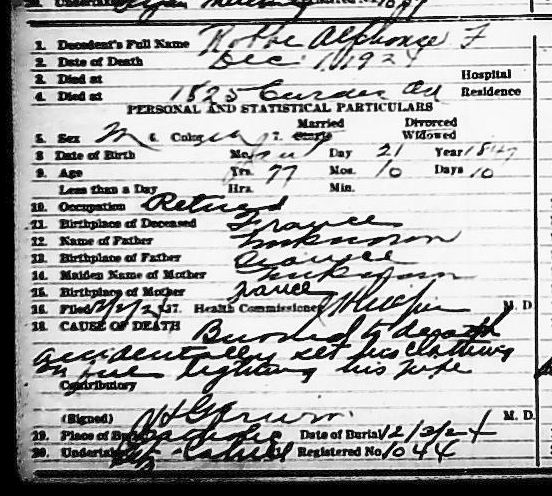 1. Decedent's Full Name Robbe Alphonse F
2. Date of Death Dec 1 1924
3. Died at Hospital
4. Died at 1825 Road Residence
PERSONAL AND STATISTICAL PARTICULARS
5. Sex M 6. Color W 7. Married Single Divorced Widowed
8 Date of Birth Mo. Day 21 Year 1847
9. Age Yrs. 77 Mos. 10 Days 10
Less than a Day Hrs. Min.
10. Occupation Retired
11. Birthplace of Deceased France
12. Name of Father Unknown
13. Birthplace of Father France
14. Maiden Name of Mother Unknown
15. Birthplace of Mother France
16. Filed 12/2/24 17. Health Commissioner M. D.
18. CAUSE OF DEATH Burned to death
accidentally set his clothing
on fire lighting his pipe
Contributory
(Signed) M. D.
19. Place of Burial Date of Burial 12/3/24
20. Undertaker Registered No. 1044